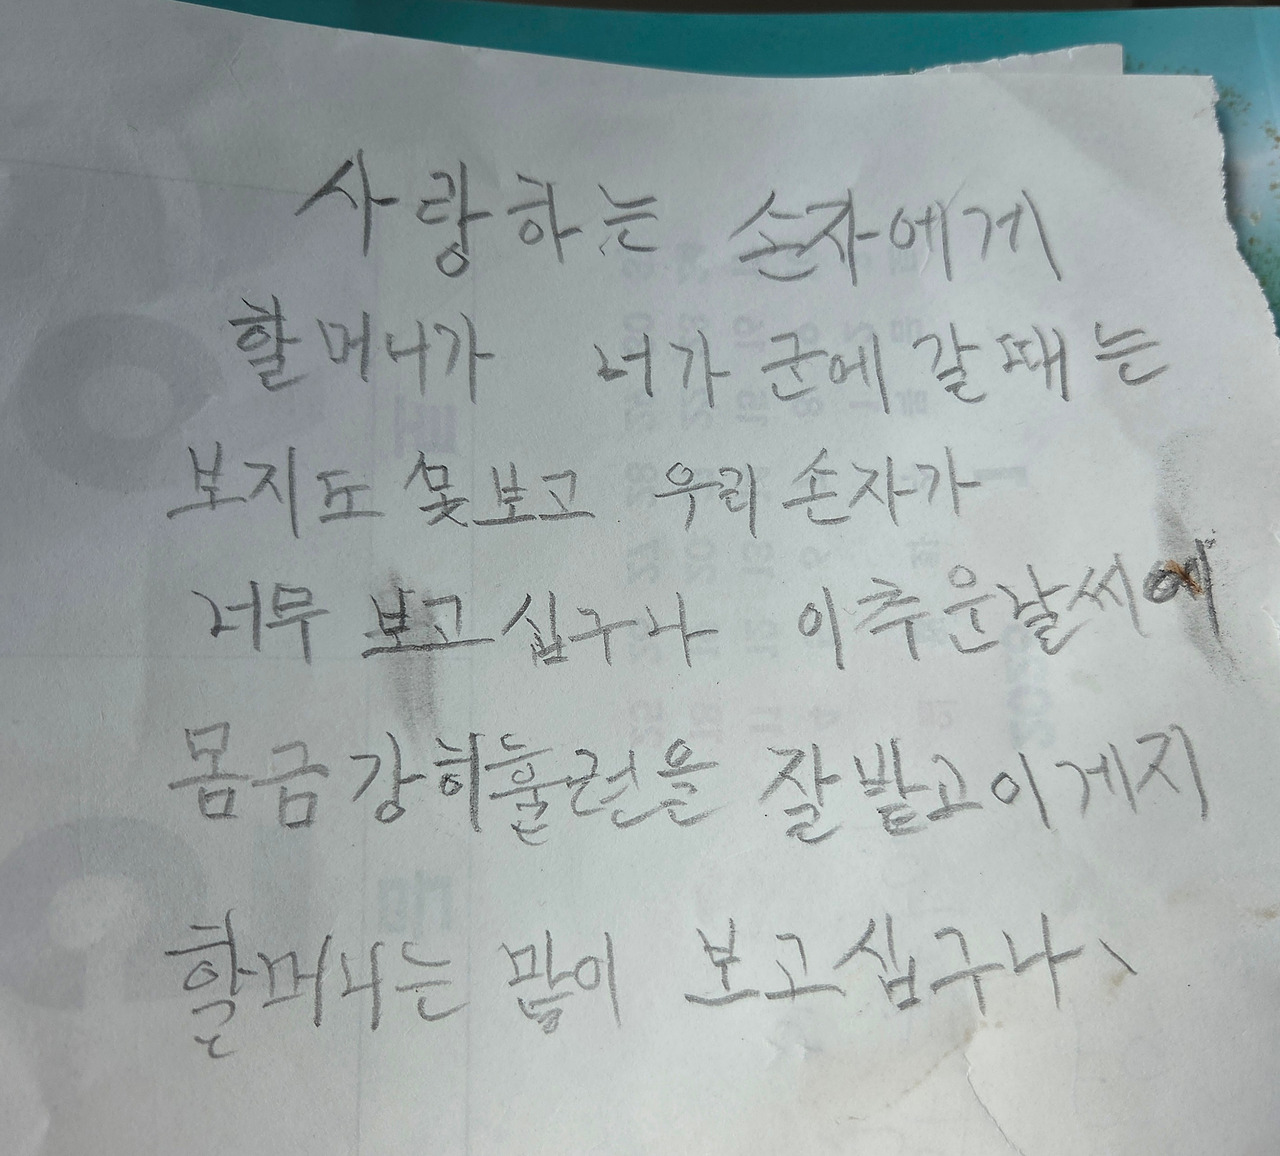 사랑하는 손자에게
할머니가 너가 군에 갈때는
보지도 못보고 우리 손자가
너무 보고 십구나 이추운날씨에
몸금강히훌련을 잘 밭고이게지
할머니는 많이 보고십구나